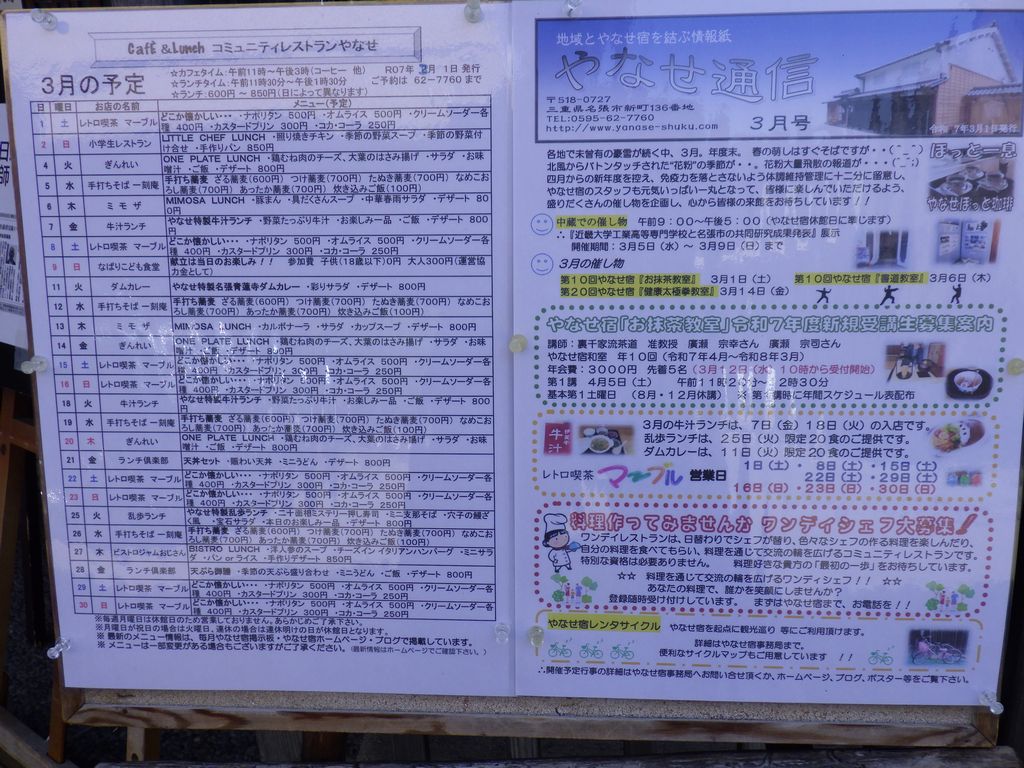 Café &Lunch コミュニティレストランやなせ
3月の予定
☆カフェタイム:午前11時~午後3時(コーヒー 他)
☆ランチタイム:午前11時30分~午後1時30分
☆ランチ:600円 ~ 850円(日によって異なります)
R07年 2月 1日 発行
ご予約は 62-7760 まで
日 曜日 お店の名前 メニュー(予定)
1 土 レトロ喫茶 マーブル どこか懐かしい・・・ ・ナポリタン 500円 ・オムライス 500円 ・クリームソーダー各種 400円 ・カスタードプリン 300円 ・コカ・コーラ 250円
2 日 小学生レストラン LITTLE CHEF LUNCH ・照り焼きチキン ・季節の野菜スープ ・季節の野菜付け合せ ・手作りパン 850円
4 火 ぎんれい ONE PLATE LUNCH ・鶏むね肉のチーズ、大葉のはさみ揚げ ・サラダ ・お味噌汁 ・ご飯 ・デザート 800円
5 水 手打ちそば 一刻庵 手打ち蕎麦 ざる蕎麦(600円) つけ蕎麦(700円) たぬき蕎麦(700円) なめこおろし蕎麦(700円) あったか蕎麦(700円) 炊き込みご飯(100円)
6 木 ミモザ MIMOSA LUNCH ・豚まん ・具だくさんスープ ・中華春雨サラダ ・デザート 800円
7 金 牛汁ランチ やなせ特製牛汁ランチ ・野菜たっぷり牛汁 ・お楽しみ一品 ・ご飯 ・デザート 800円
8 土 レトロ喫茶 マーブル どこか懐かしい・・・ ・ナポリタン 500円 ・オムライス 500円 ・クリームソーダー各種 400円 ・カスタードプリン 300円 ・コカ・コーラ 250円
9 日 なばりこども食堂 献立は当日のお楽しみ!! 参加費 子供(18歳以下)0円 大人300円(運営協力金として)
11 火 ダムカレー やなせ特製名張青蓮寺ダムカレー ・彩りサラダ ・デザート 800円
12 水 手打ちそば 一刻庵 手打ち蕎麦 ざる蕎麦(600円) つけ蕎麦(700円) たぬき蕎麦(700円) なめこおろし蕎麦(700円) あったか蕎麦(700円) 炊き込みご飯(100円)
13 木 ミモザ MIMOSA LUNCH ・カルボナーラ ・サラダ ・カップスープ ・デザート 800円
14 金 ぎんれい ONE PLATE LUNCH ・鶏むね肉のチーズ、大葉のはさみ揚げ ・サラダ ・お味噌汁 ・ご飯 ・デザート 800円
15 土 レトロ喫茶 マーブル どこか懐かしい・・・ ・ナポリタン 500円 ・オムライス 500円 ・クリームソーダー各種 400円 ・カスタードプリン 300円 ・コカ・コーラ 250円
16 日 レトロ喫茶 マーブル どこか懐かしい・・・ ・ナポリタン 500円 ・オムライス 500円 ・クリームソーダー各種 400円 ・カスタードプリン 300円 ・コカ・コーラ 250円
18 火 牛汁ランチ やなせ特製牛汁ランチ ・野菜たっぷり牛汁 ・お楽しみ一品 ・ご飯 ・デザート 800円
19 水 手打ちそば 一刻庵 手打ち蕎麦 ざる蕎麦(600円) つけ蕎麦(700円) たぬき蕎麦(700円) なめこおろし蕎麦(700円) あったか蕎麦(700円) 炊き込みご飯(100円)
20 木 ぎんれい ONE PLATE LUNCH ・鶏むね肉のチーズ、大葉のはさみ揚げ ・サラダ ・お味噌汁 ・ご飯 ・デザート 800円
21 金 ランチ倶楽部 天丼セット ・賑わい天丼 ・ミニうどん ・デザート 800円
22 土 レトロ喫茶 マーブル どこか懐かしい・・・ ・ナポリタン 500円 ・オムライス 500円 ・クリームソーダー各種 400円 ・カスタードプリン 300円 ・コカ・コーラ 250円
23 日 レトロ喫茶 マーブル どこか懐かしい・・・ ・ナポリタン 500円 ・オムライス 500円 ・クリームソーダー各種 400円 ・カスタードプリン 300円 ・コカ・コーラ 250円
25 火 乱歩ランチ やなせ特製乱歩ランチ ・二十面相ミステリー押し寿司 ・ミニ支那そば ・穴子の鰻ざく風 ・宝石サラダ ・本日のお楽しみ一品 ・デザート 800円
26 水 手打ちそば 一刻庵 手打ち蕎麦 ざる蕎麦(600円) つけ蕎麦(700円) たぬき蕎麦(700円) なめこおろし蕎麦(700円) あったか蕎麦(700円) 炊き込みご飯(100円)
27 木 ビストロジャムおじさん BISTRO LUNCH ・洋人参のスープ ・チーズイン イタリアンハンバーグ ・ミニサラダ ・パン or ライス ・手作りデザート 850円
28 金 ランチ倶楽部 天ぷら御膳 ・季節の天ぷら盛り合わせ ・ミニうどん ・ご飯 ・デザート 800円
29 土 レトロ喫茶 マーブル どこか懐かしい・・・ ・ナポリタン 500円 ・オムライス 500円 ・クリームソーダー各種 400円 ・カスタードプリン 300円 ・コカ・コーラ 250円
30 日 レトロ喫茶 マーブル どこか懐かしい・・・ ・ナポリタン 500円 ・オムライス 500円 ・クリームソーダー各種 400円 ・カスタードプリン 300円 ・コカ・コーラ 250円
※毎週月曜日は休館日のため営業しておりません。あらかじめご了承下さい。
※月曜日が祝日の場合は火曜日、連休の場合は連休明けの日が休館日となります。
※ 最新のメニュー情報は、毎月やなせ宿掲示板・やなせ宿ホームページ・ブログで掲載しています。
※ メニューは一部変更がある場合もございますがご了承ください。(最新情報はホームページでご確認下さい。)
地域とやなせ宿を結ぶ情報紙
やなせ通信
〒518-0727
三重県名張市新町136番地
TEL:0595-62-7760
http://www.yanase-shuku.com
3月号
令和 7年3月1日発行
各地で未曽有の豪雪が続く中、3月。年度末。 春の萌しはすぐそこですが・・(´-`)
北風からバトンタッチされた"花粉"の季節が・・。花粉大量飛散の報道が・・・・(¯;)
四月からの新年度を控え、免疫力を落とさないよう体調維持管理に十二分に留意し、
やなせ宿のスタッフも元気いっぱい一丸となって、皆様に楽しんでいただけるよう、
盛りだくさんの催し物を企画し、心から皆様の来館をお待ちしています!!
ほっと一息
やなせほっと珈琲
中蔵での催し物 午前9:00~午後5:00(やなせ宿休館日に準じます)
∴『近畿大学工業高等専門学校と名張市の共同研究成果発表』展示
開催期間:3月5日(水)~ 3月9日(日)まで
3月の催し物
第10回やなせ宿『お抹茶教室』 3月1日(土) 第10回やなせ宿『書道教室』 3月6日(木)
第20回やなせ宿『健康太極拳教室』3月14日(金)
やなせ宿「お抹茶教室」令和7年度新規受講生募集案内
講師:裏千家流茶道 准教授 廣瀬 宗幸さん 廣瀬 宗司さん
やなせ宿和室 年10回(令和7年4月~令和8年3月)
年会費:3000円 先着5名(3月12日(水)10時から受付開始)
第1講 4月5日(土) 午前11時20分~12時30分
基本第1土曜日 (8月・12月休講) ※ 第1講時に年間スケジュール表配布
牛汁
3月の牛汁ランチは、7日(金)18日(火)の入店です。
乱歩ランチは、25日(火)限定20食のご提供です。
ダムカレーは、11日(火)限定20食のご提供です。
レトロ喫茶 マーブル 営業日
1日(土)・ 8日(土)・15日(土)
22日(土)・29日(土)
16日(日)・23日(日)・30日(日)
料理作ってみませんか ワンデイシェフ大募集!
ワンデイレストランは、日替わりでシェフが替り、色々なシェフの作る料理を楽しんだり、
自分の料理を食べてもらい、料理を通じて交流の輪を広げるコミュニティレストランです。
特別な資格は必要ありません。 料理好きな貴方の「最初の一歩」をお待ちしています。
☆☆ 料理を通じて交流の輪を広げるワンデイシェフ!! ☆☆
あなたの料理で、誰かを笑顔にしませんか?
登録随時受け付けしています。 まずはやなせ宿まで、お電話を!!
やなせ宿レンタサイクル やなせ宿を起点に観光巡り 等にご利用頂けます。
詳細はやなせ宿事務局まで。
便利なサイクルマップもご用意しています !!
∴開催予定行事の詳細はやなせ宿事務局へお問い合せ頂くか、ホームページ、ブログ、ポスター等をご覧下さい。